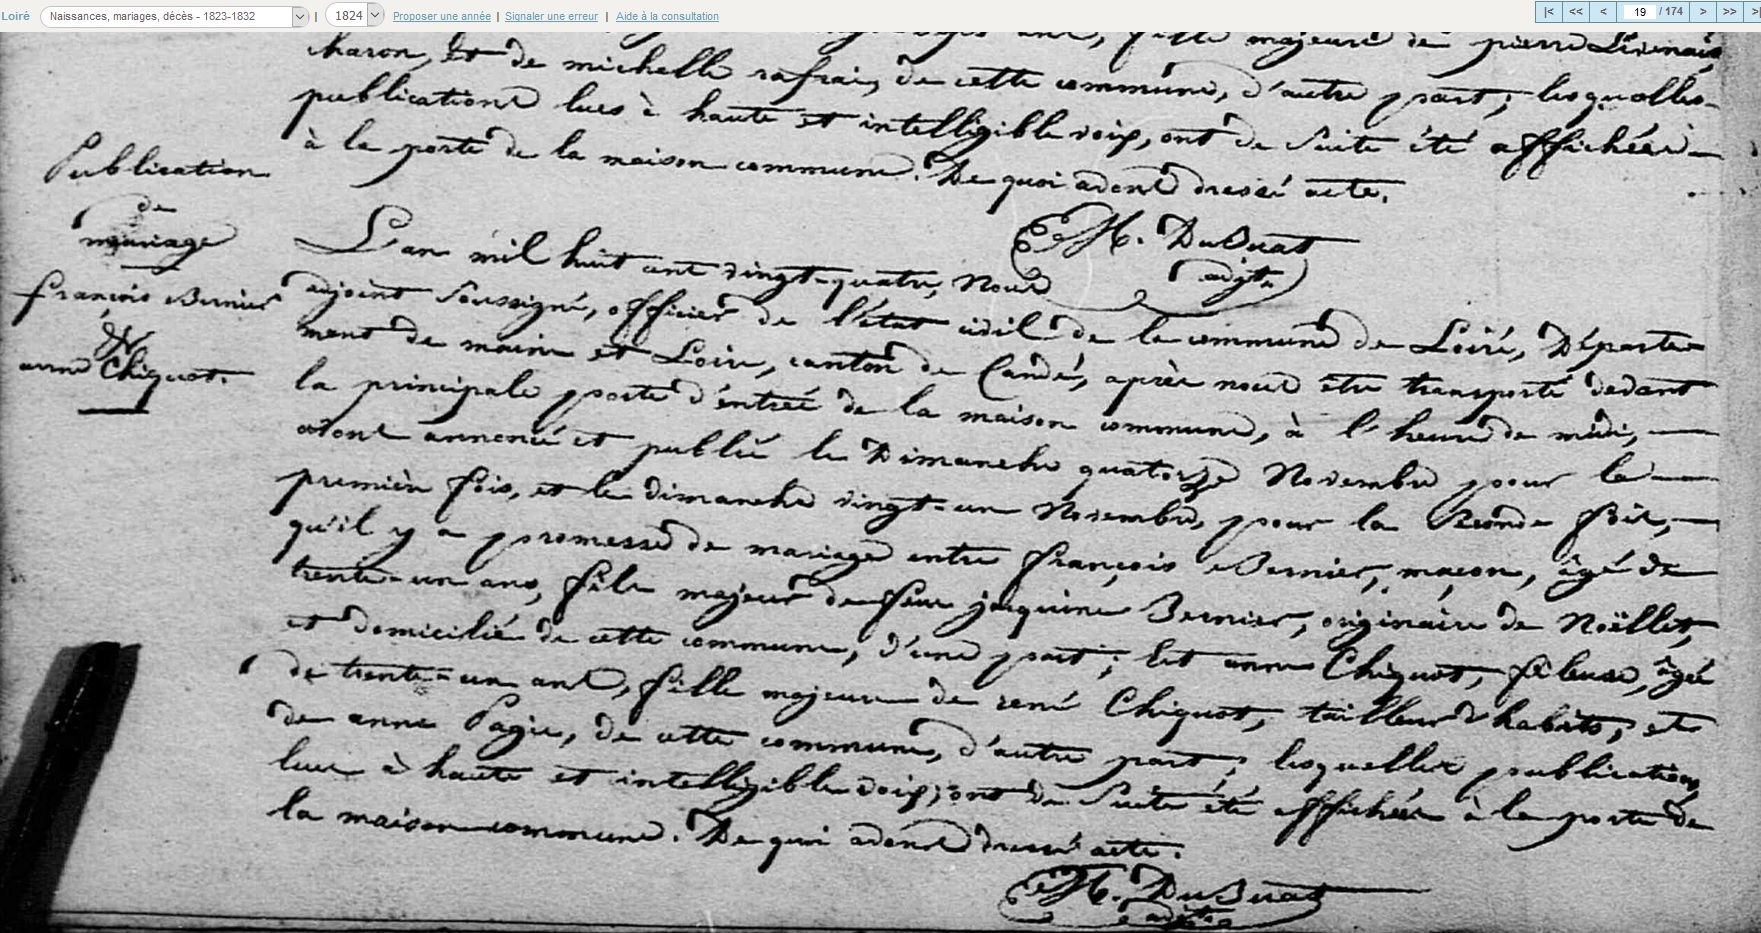 Loiré Naissances, mariages, décès - 1823-1832 | 1824 Proposer une année | Signaler une erreur | Aide à la consultation |< << < 19 / 174 > >> >|
charon, et de michelle rafrai, de cette commune, d'autre part; lesquelles
publications lues à haute et intelligible voix, ont de suite été affichées
à la porte de la maison commune. De quoi avons dressé acte.
H. DuBuat
adjt.
Publication
de
mariage
françois Bernier
&
anne Chiquot.
L'an mil huit cent vingt-quatre, Nous
adjoint soussigné, officier de l'état civil de la commune de Loiré, Départe-
ment de maine et Loire, canton de Candé, après nous être transporté devant
la principale porte d'entrée de la maison commune, à l'heure de midi,
avons annoncé et publié le Dimanche quatorze Novembre pour la
première fois, et le dimanche vingt-un Novembre, pour la seconde fois,
qu'il y a promesse de mariage entre françois Bernier, maçon, âgé de
trente-un ans, fils majeur de feue jacquine Bernier, originaire de Noëllet,
et domicilié de cette commune, d'une part; Et anne Chiquot, fileuse, âgée
de trente-un ans, fille majeure de rené Chiquot, tailleur d'habits, et
de anne Pagie, de cette commune, d'autre part; lesquelles publications
lues à haute et intelligible voix, ont de suite été affichées à la porte de
la maison commune. De quoi avons dressé acte.
H. DuBuat
adjt.